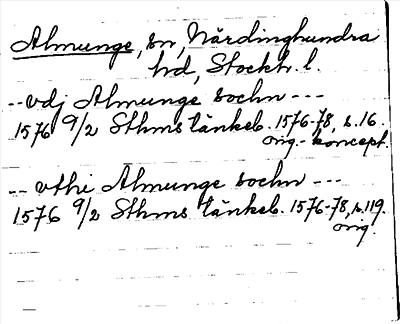 Almunge, sn, Närdinghundra
hd, Stockh. l.
-- vdj Almunge sochn ---
1576 9/2 Sthms tänkeb. 1576-78, s. 16.
orig.-koncept.
-- vthi Almunge sochn ---
1576 9/2 Sthms tänkeb. 1576-78, s. 119.
orig.